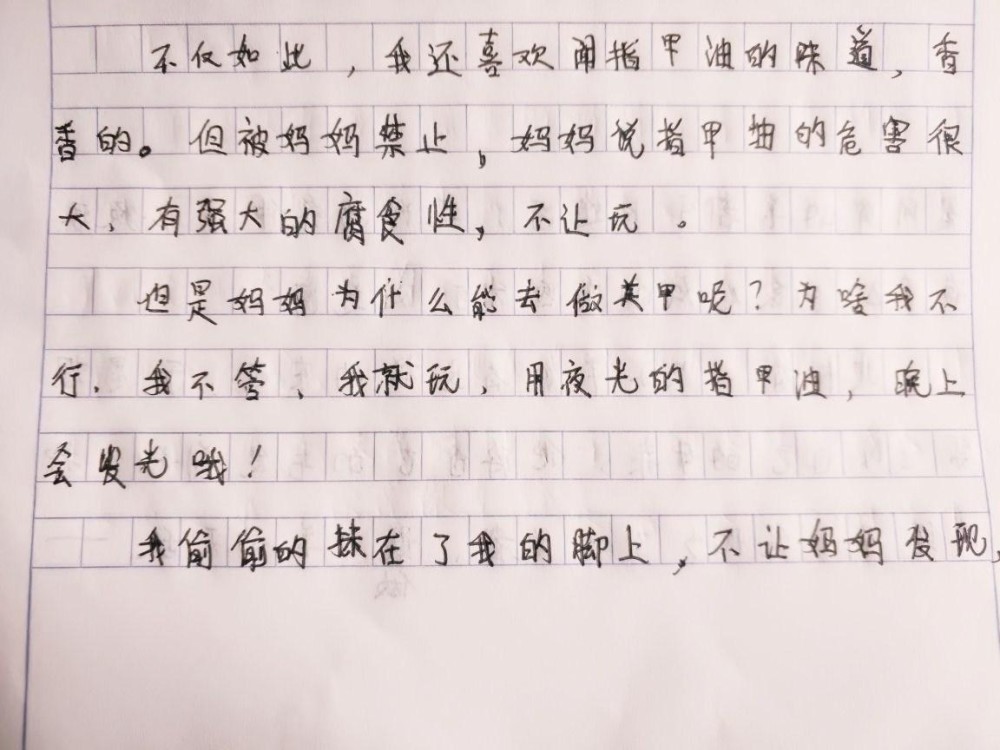 不仅如此，我还喜欢闻指甲油的味道，香
香的。但被妈妈禁止，妈妈说指甲油的危害很
大，有强大的腐食性，不让玩。
但是妈妈为什么能去做美甲呢？为啥我不
行，我不管、我就玩，用夜光的指甲油，晚上
会发光哦！
我偷偷的抹在了我的脚上，不让妈妈发现，